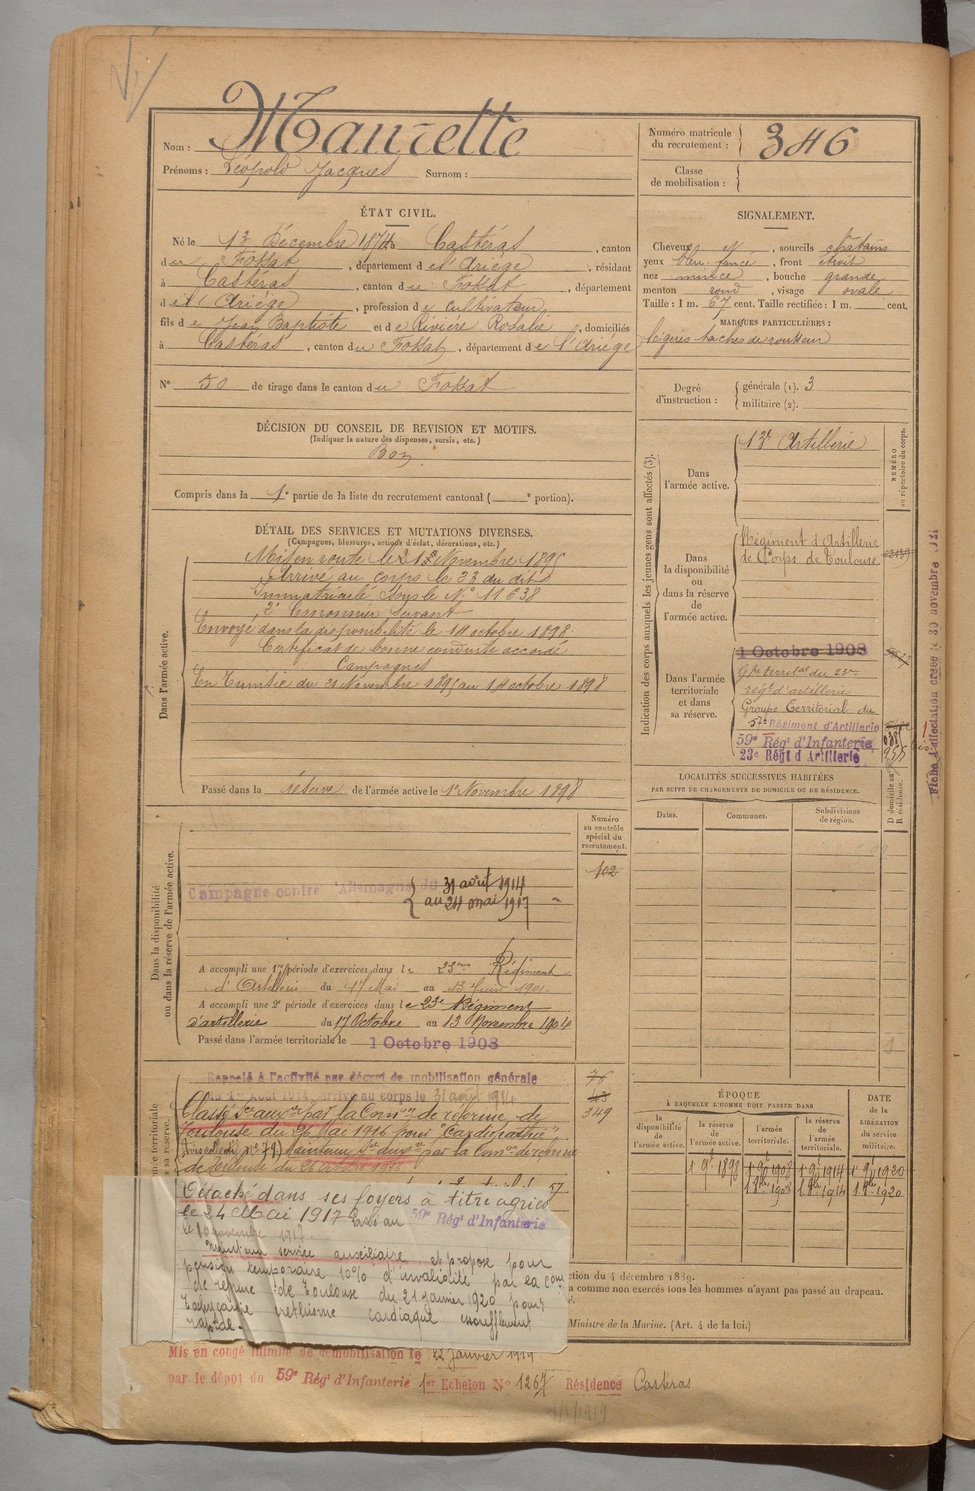 Nom : Maurette
Prénoms : Léopold Jacques Surnom :
Numéro matricule du recrutement : 346
Classe de mobilisation :
ÉTAT CIVIL.
Né le 13 Décembre 1874 à Castéras, canton
du Fossat, département de l'Ariége, résidant
à Castéras, canton du Fossat, département
de l'Ariége, profession de cultivateur,
fils de Jean Baptiste et de Rivière Rosalie, domiciliés
à Castéras, canton du Fossat, département de l'Ariége
N° 50 de tirage dans le canton du Fossat
SIGNALEMENT.
Cheveux et, sourcils châtains
yeux, front étroit
nez mince, bouche grande
menton rond, visage ovale
Taille : 1 m. 67 cent. Taille rectifiée : 1 m. cent.
MARQUES PARTICULIÈRES :
légères taches de rousseur
Degré d'instruction : générale (1). 3
militaire (2).
DÉCISION DU CONSEIL DE REVISION ET MOTIFS.
(Indiquer la nature des dispenses, sursis, etc.)
Bon.
Compris dans la 1e partie de la liste du recrutement cantonal ( e portion).
DÉTAIL DES SERVICES ET MUTATIONS DIVERSES.
(Campagnes, blessures, actions d'éclat, décorations, etc.)
Dans l'armée active.
Mis en route le Novembre 1895
Arrivé au corps le du dit
Immatriculé sous le N° 11638
2e Canonnier Servant
Envoyé dans la disponibilité le 14 octobre 1898
Certificat de bonne conduite accordé
Campagnes
En Tunisie du 21 Novembre 1895 au 14 octobre 1898
Passé dans la réserve de l'armée active le 1er Novembre 1898
Indication des corps auxquels les jeunes gens sont affectés (3).
NUMÉRO au répertoire du corps.
Dans l'armée active.
13e Artillerie
Dans la disponibilité ou dans la réserve de l'armée active.
Régiment d'Artillerie
de Corps de Toulouse.
Dans l'armée territoriale et dans sa réserve.
1 Octobre 1908
Gpe territal du 23e
régt d'artillerie
Groupe Territorial du
57e Régiment d'Artillerie
59e Régt d'Infanterie
23e Régt d'Artillerie
Fiche d'affectation créée le 30 novembre
LOCALITÉS SUCCESSIVES HABITÉES
PAR SUITE DE CHANGEMENTS DE DOMICILE OU DE RÉSIDENCE.
Dates.
Communes.
Subdivisions de région.
D domicile ou R résidence.
Dans la disponibilité ou dans la réserve de l'armée active.
Numéro au contrôle spécial du recrutement.
102
Campagne contre l'Allemagne du 31 août 1914
au 24 mai 1917
A accompli une 1re période d'exercices dans le 23me Régiment
d'Artillerie du 17 Mai au 13 Juin 1901.
A accompli une 2e période d'exercices dans le 23e Régiment
d'artillerie du 17 Octobre au 13 Novembre 1904
Passé dans l'armée territoriale le 1 Octobre 1908
Rappelé à l'activité par décret de mobilisation générale
du 1er Août 1914, arrivé au corps le 31 août 1914
76
349
Classé Sce auxre par la Comon de réforme de
Toulouse du 26 Mai 1916 pour "Cardiopathie"
Maintenu Sce auxre par la Comon de réforme
de Toulouse du
57
Détaché dans ses foyers à titre agricole
le 24 Mai 1917 Passé au 59e Régt d'Infanterie
le novembre 1917
Maintenu service auxiliaire et proposé pour
pension temporaire 10% d'invalidité par la Com
de réforme de Toulouse du 21 janvier 1920 pour
Tachycardie éréthisme cardiaque essoufflement
rapide.
ÉPOQUE
À LAQUELLE L'HOMME DOIT PASSER DANS
la disponibilité de l'armée active.
la réserve de l'armée active.
l'armée territoriale.
la réserve de l'armée territoriale.
DATE de la LIBÉRATION du service militaire.
1 9bre 1898
1 9bre 1908
1 9bre 1914
1 9bre 1920
1 8bre 1908
1 8bre 1914
1 8bre 1920
ction du 4 décembre 1889.
a comme non exercés tous les hommes n'ayant pas passé au drapeau.
Ministre de la Marine. (Art. 4 de la loi.)
Mis en congé illimité de démobilisation le 22 Janvier 1919
par le dépôt du 59e Régt d'Infanterie 1er Echelon N° 1267 Résidence Castéras